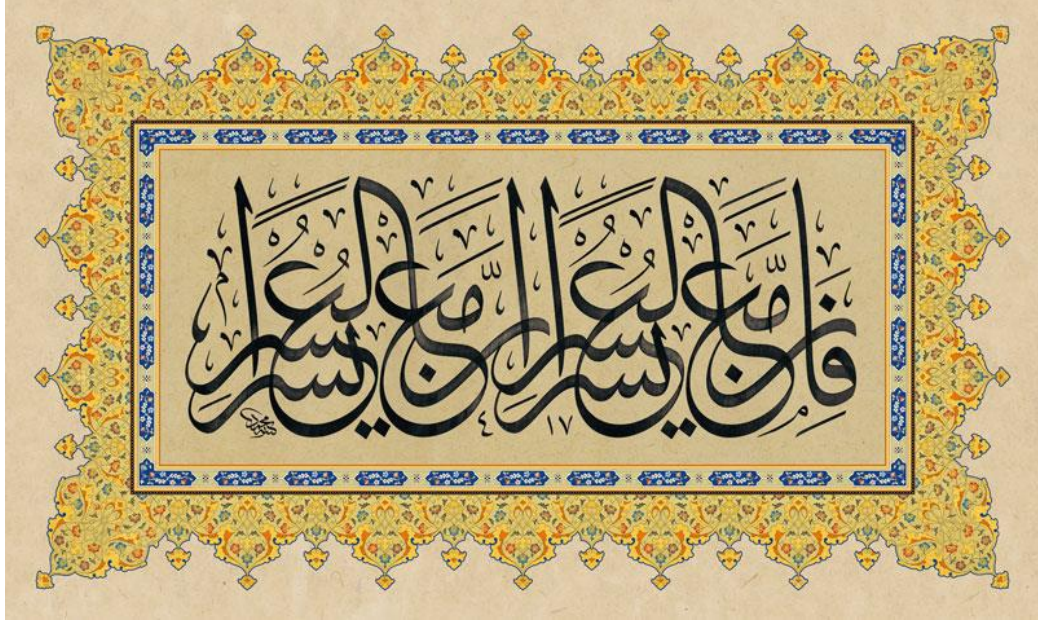 فَإِنَّ مَعَ الْعُسْرِ يُسْرًا إِنَّ مَعَ الْعُسْرِ يُسْرًا